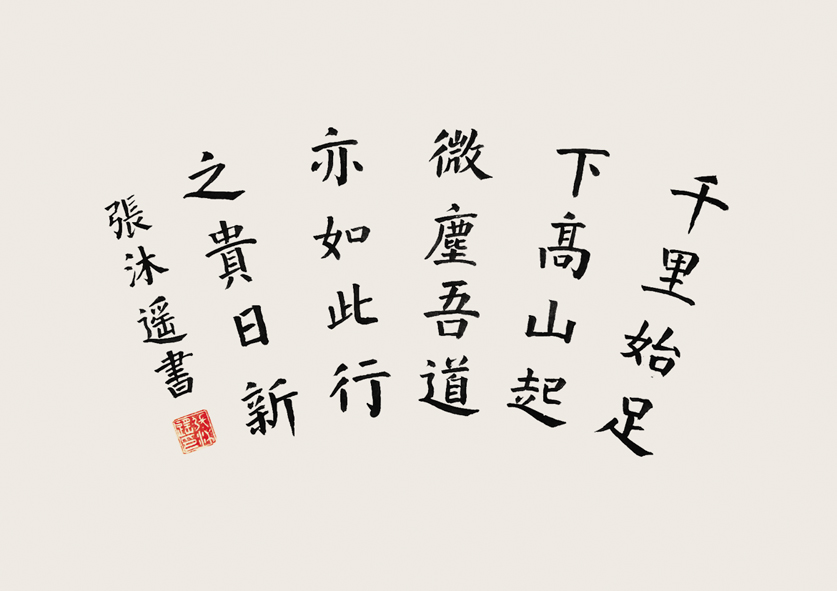 千里始足
下高山起
微塵吾道
亦如此行
之貴日新
張沐遥書